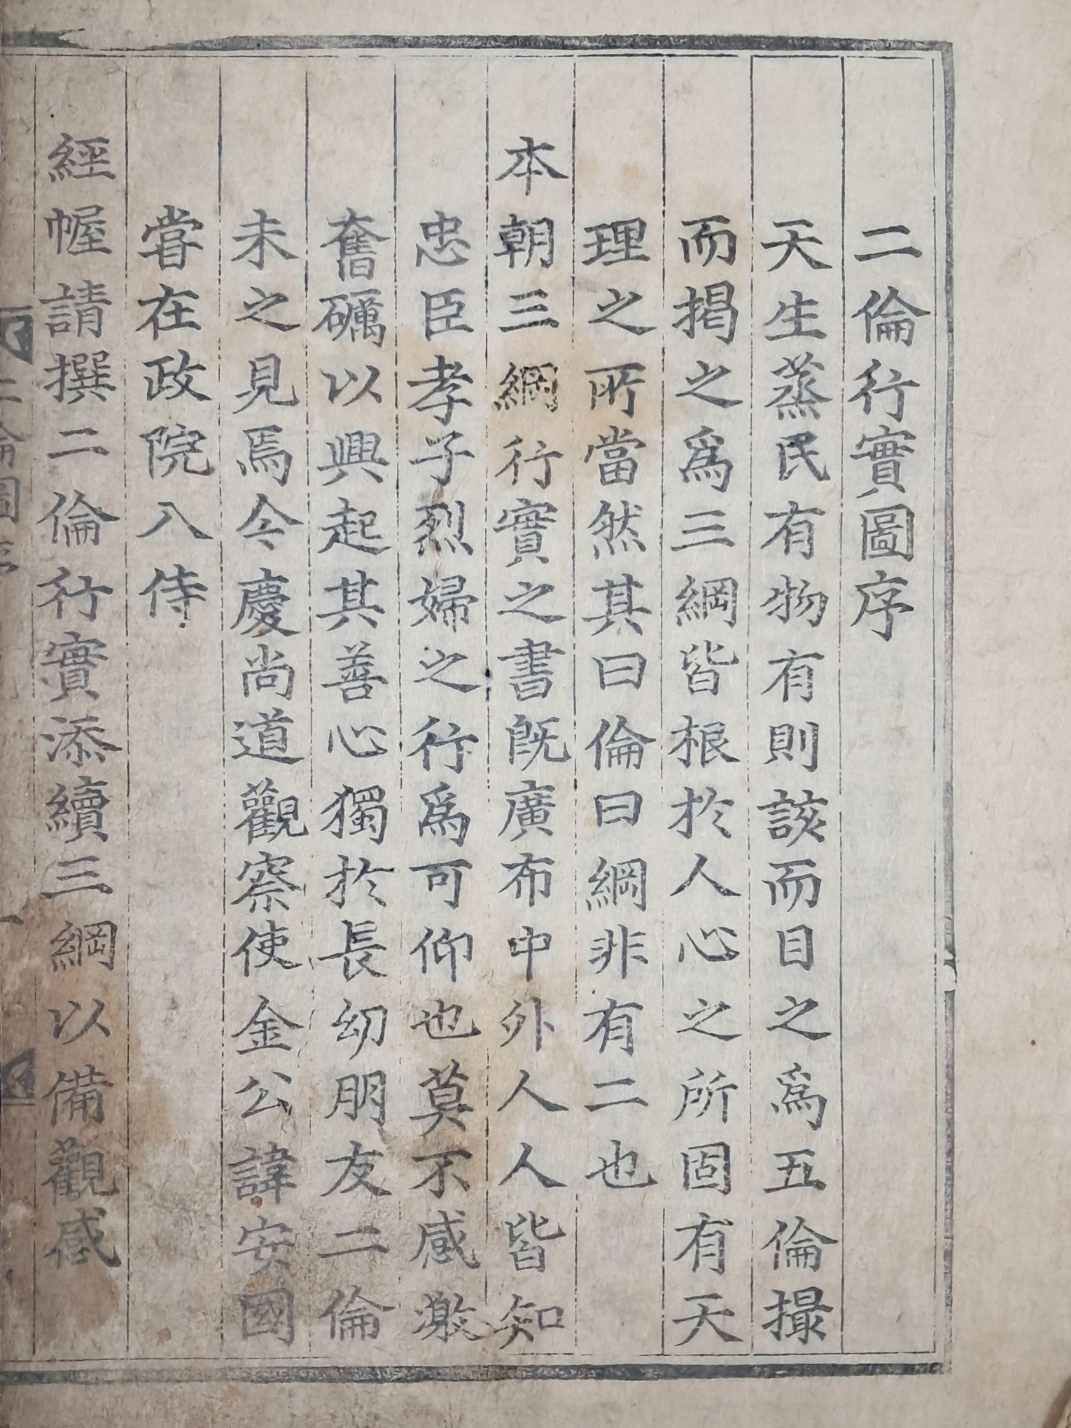 二倫行實圖序
天生蒸民有物有則該而目之爲五倫撮
而揭之爲三綱皆根於人心之所固有天
理之所當然其曰倫曰綱非有二也
本朝三綱行實之書旣廣布中外人人皆知
忠臣孝子烈婦之行爲可仰也莫不感激
奮礪以興起其善心獨於長幼朋友二倫
未之見焉今慶尚道觀察使金公諱安國
甞在政院入侍
經幄請撰二倫行實添續三綱以備觀感
二倫圖序
一